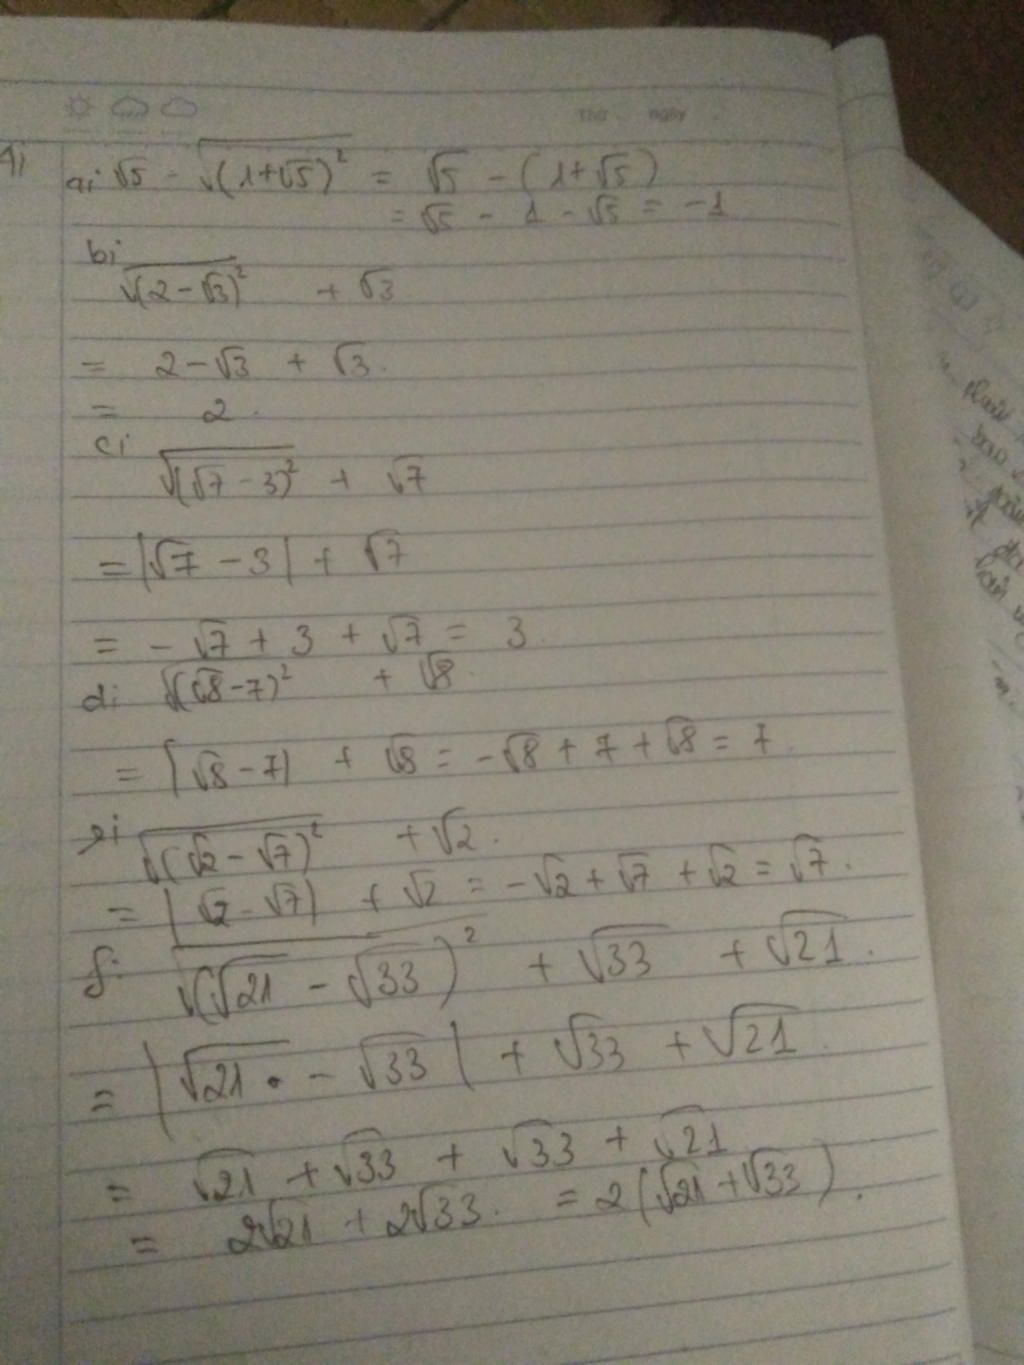 Thứ ngày
4)
a; √5 - √(1+√5)² = √5 - (1+√5)
= √5 - 1 - √5 = -1
b;
√(2-√3)² + √3
= 2-√3 + √3.
= 2.
c;
√(√7 - 3)² + √7
= |√7 - 3| + √7
= -√7 + 3 + √7 = 3.
d; √(√8-7)² + √8.
= |√8-7| + √8 = -√8 + 7 + √8 = 7.
e; √(√2 - √7)² + √2.
= |√2 - √7| + √2 = -√2 + √7 + √2 = √7.
f; √(√21 - √33)² + √33 + √21.
= |√21 - √33| + √33 + √21.
= √21 + √33 + √33 + √21
= 2√21 + 2√33. = 2(√21 + √33).